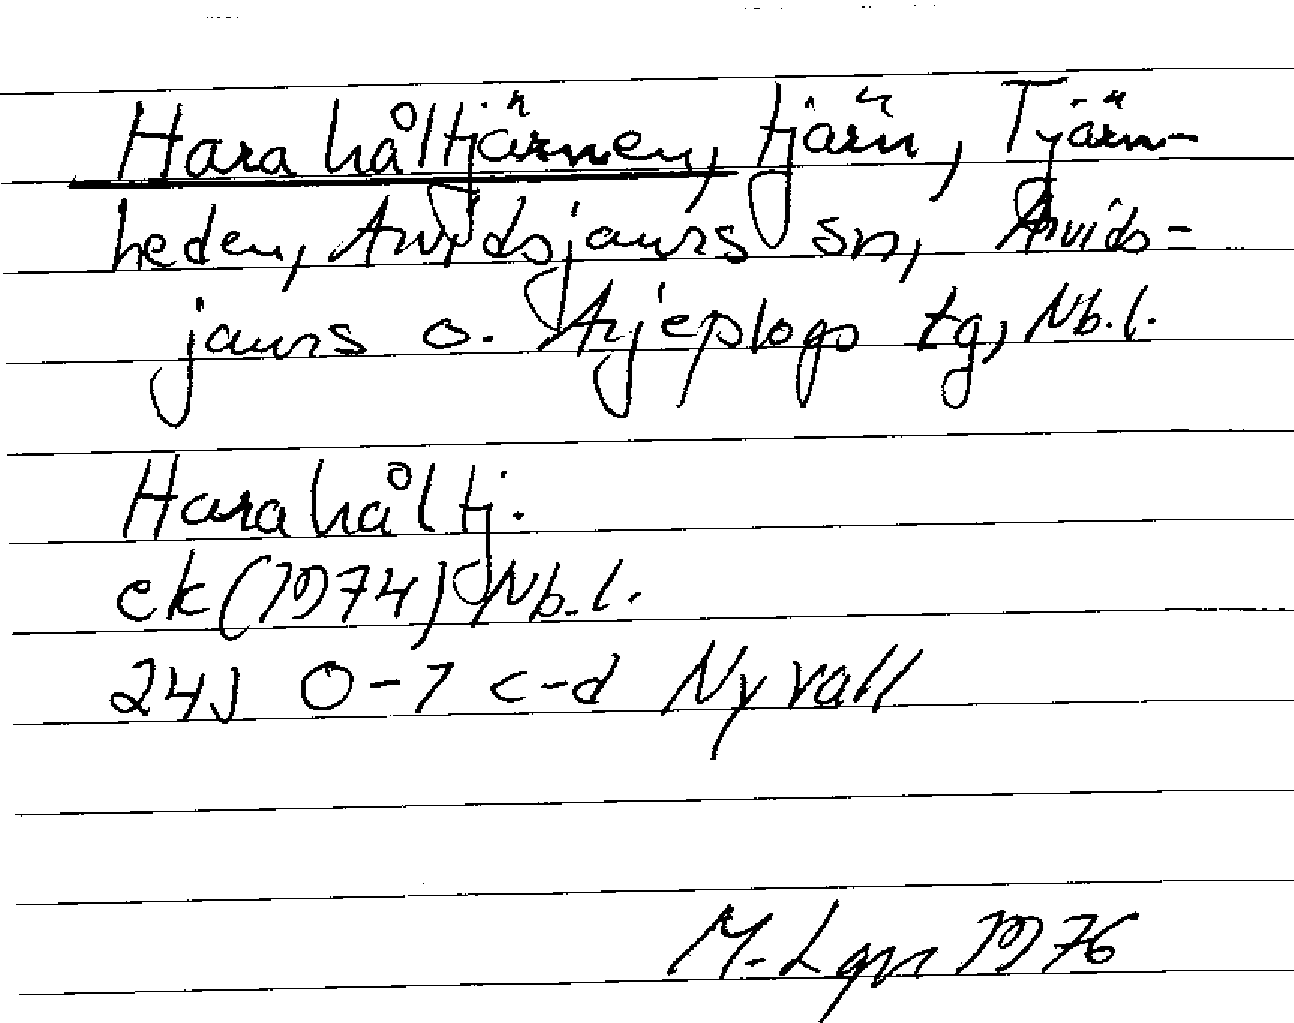 Harahåltjärnen, tjärn, Tjärn-
heden, Arvidsjaurs sn, Arvids=
jaurs o. Arjeplogs tg, Nb.l.
Harahåltj.
ek (1974) Nb.l.
24J 0-1 c-d Nyvall
M. Lgn 1976